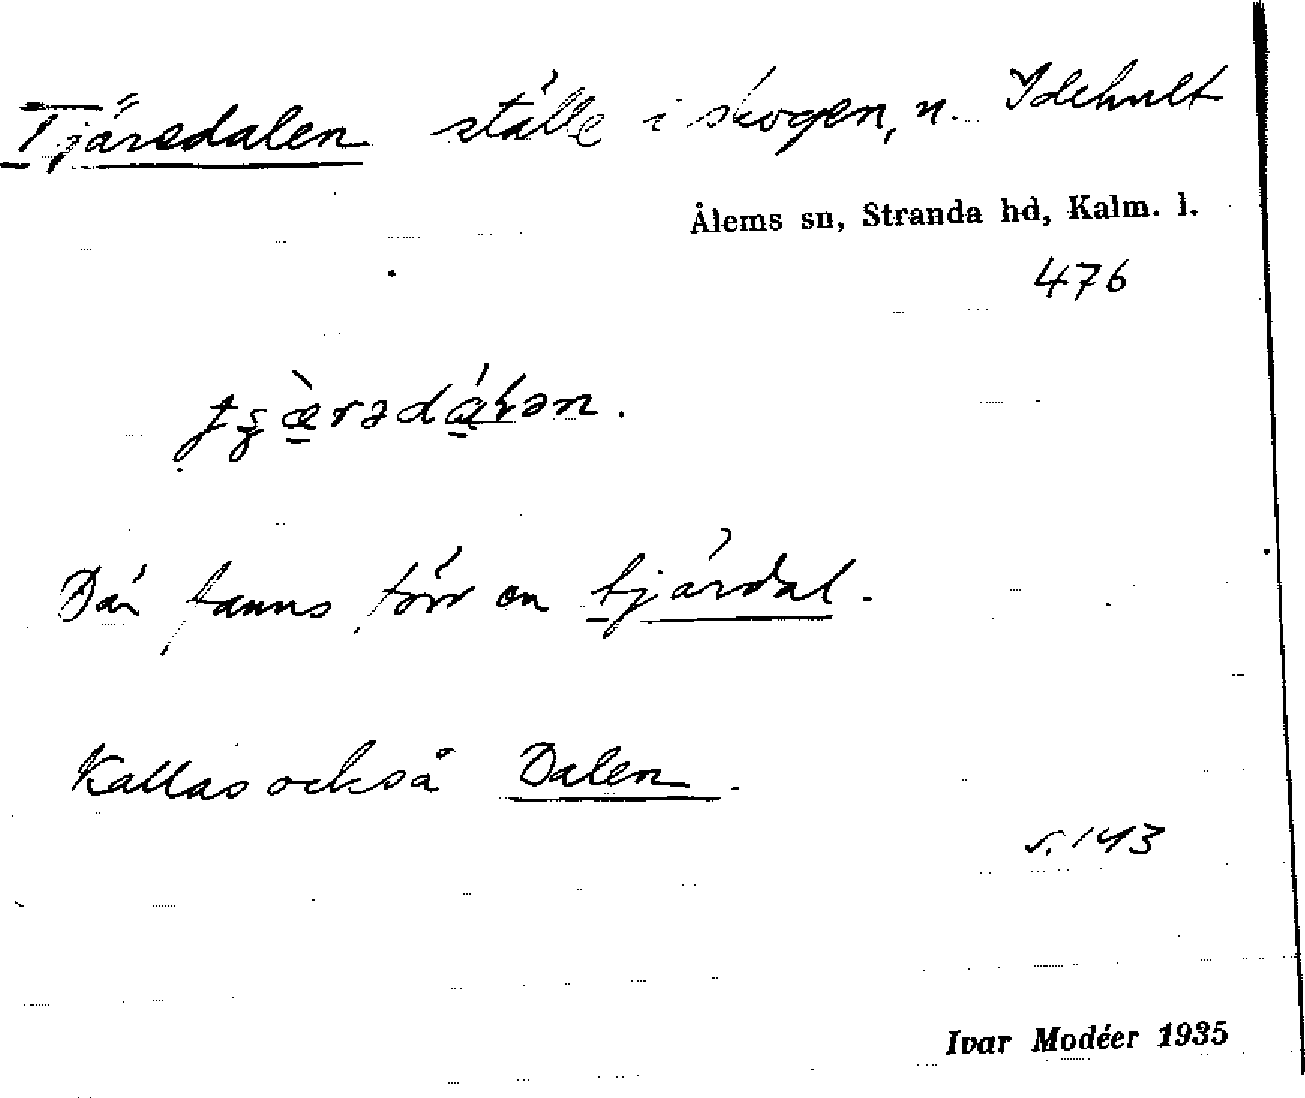 Tjäredalen ställe i skogen, n. Idehult
Ålems sn, Stranda hd, Kalm. l.
476
Där fanns förr en tjärdal.
Kallas också Dalen.
s. 143
Ivar Modéer 1935